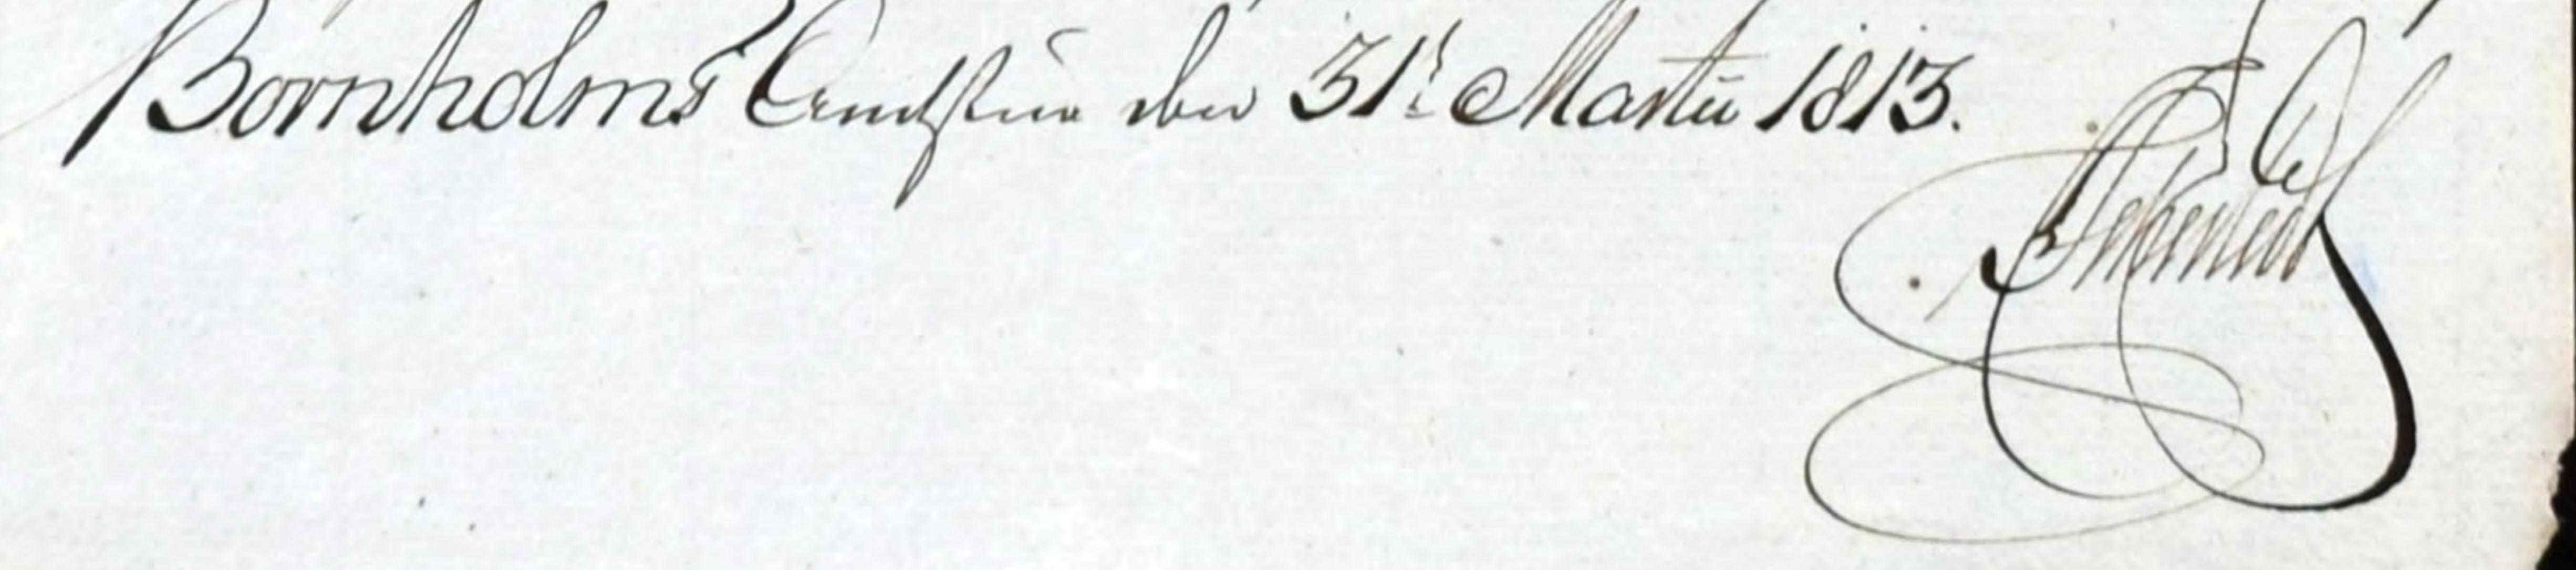 Bornholms Amtstue den 31t Martii 1813.